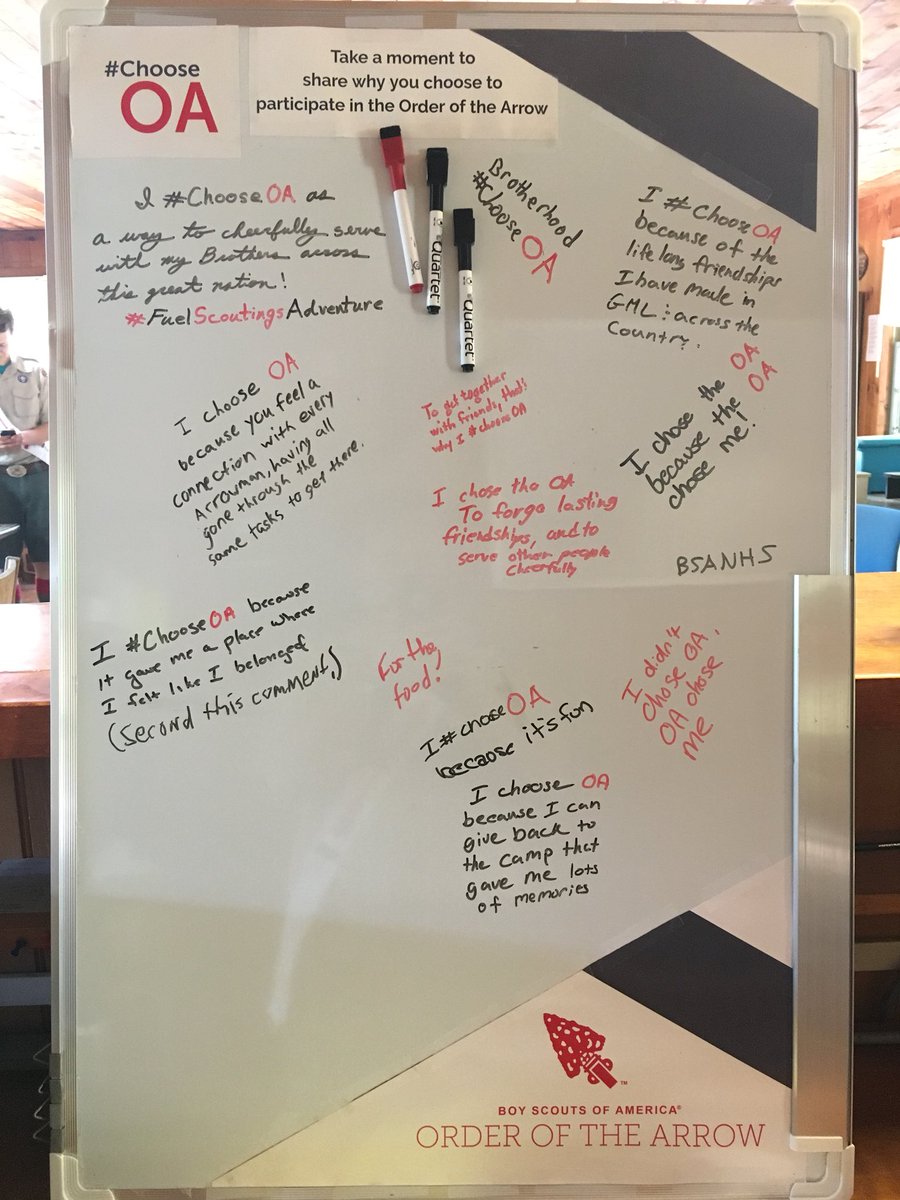 #Choose
OA
Take a moment to
share why you choose to
participate in the Order of the Arrow
Quartet
Quartet
Brotherhood
#Choose OA
I #Choose OA as
a way to cheerfully serve
with my Brothers across
this great nation!
#FuelScoutingsAdventure
I #Choose OA
because of the
life long friendships
I have made in
GML : across the
Country.
I choose OA
because you feel a
connection with every
Arrowman, having all
gone through the
same tasks to get there.
To get together
with friends, that's
why I #choose OA
I chose the OA
because the OA
chose me!
I chose the OA
To forge lasting
friendships, and to
serve other people
cheerfully
BSANHS
I #Choose OA because
it gave me a place where
I felt like I belonged
(second this comment)
For the
food!
I didn't
chose OA,
OA chose
me
I #chose OA
because it's fun
I choose OA
because I can
give back to
the camp that
gave me lots
of memories
TM
BOY SCOUTS OF AMERICA®
ORDER OF THE ARROW